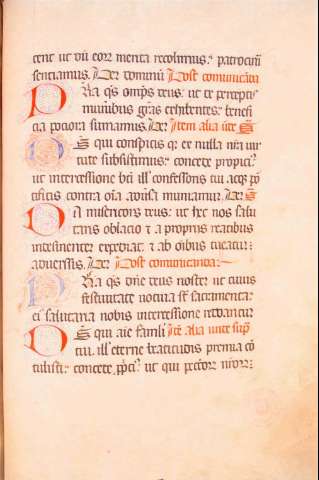 cent ut dum eorr merita recolimus: patrociniū
sentiamus. Per dominū Post comunicandā
Pra qs omps deus: ut de perceptis
muneribus gras exhibentes: benefi
cia pociora sumamus. Per Item alia ūte S
Ds qui conspicis qz ex nulla nrā vir
tute subsistimus: concede propici?
ut intercessione bti ill confessoris tui acqz pō
tificis contra oīa adūsa muniamur. Per S
Da misericors deus: ut hec nos salu
taris oblacio et a propriis reatibus
indesinenter expediat: et ab oībus tueatur
aduersis. Per Post comunicanda
Pra qs dnē deus noster ut cuius
festiuitate uotiua st sacramenta:
ei salutaria nobis intercessione reddantur
Ds qui aīe famli Itē alia unde supᵃ
tui. ill eterne beatitudis premia cō
tulisti: concede ppci? ut qui pctōrr nrorr